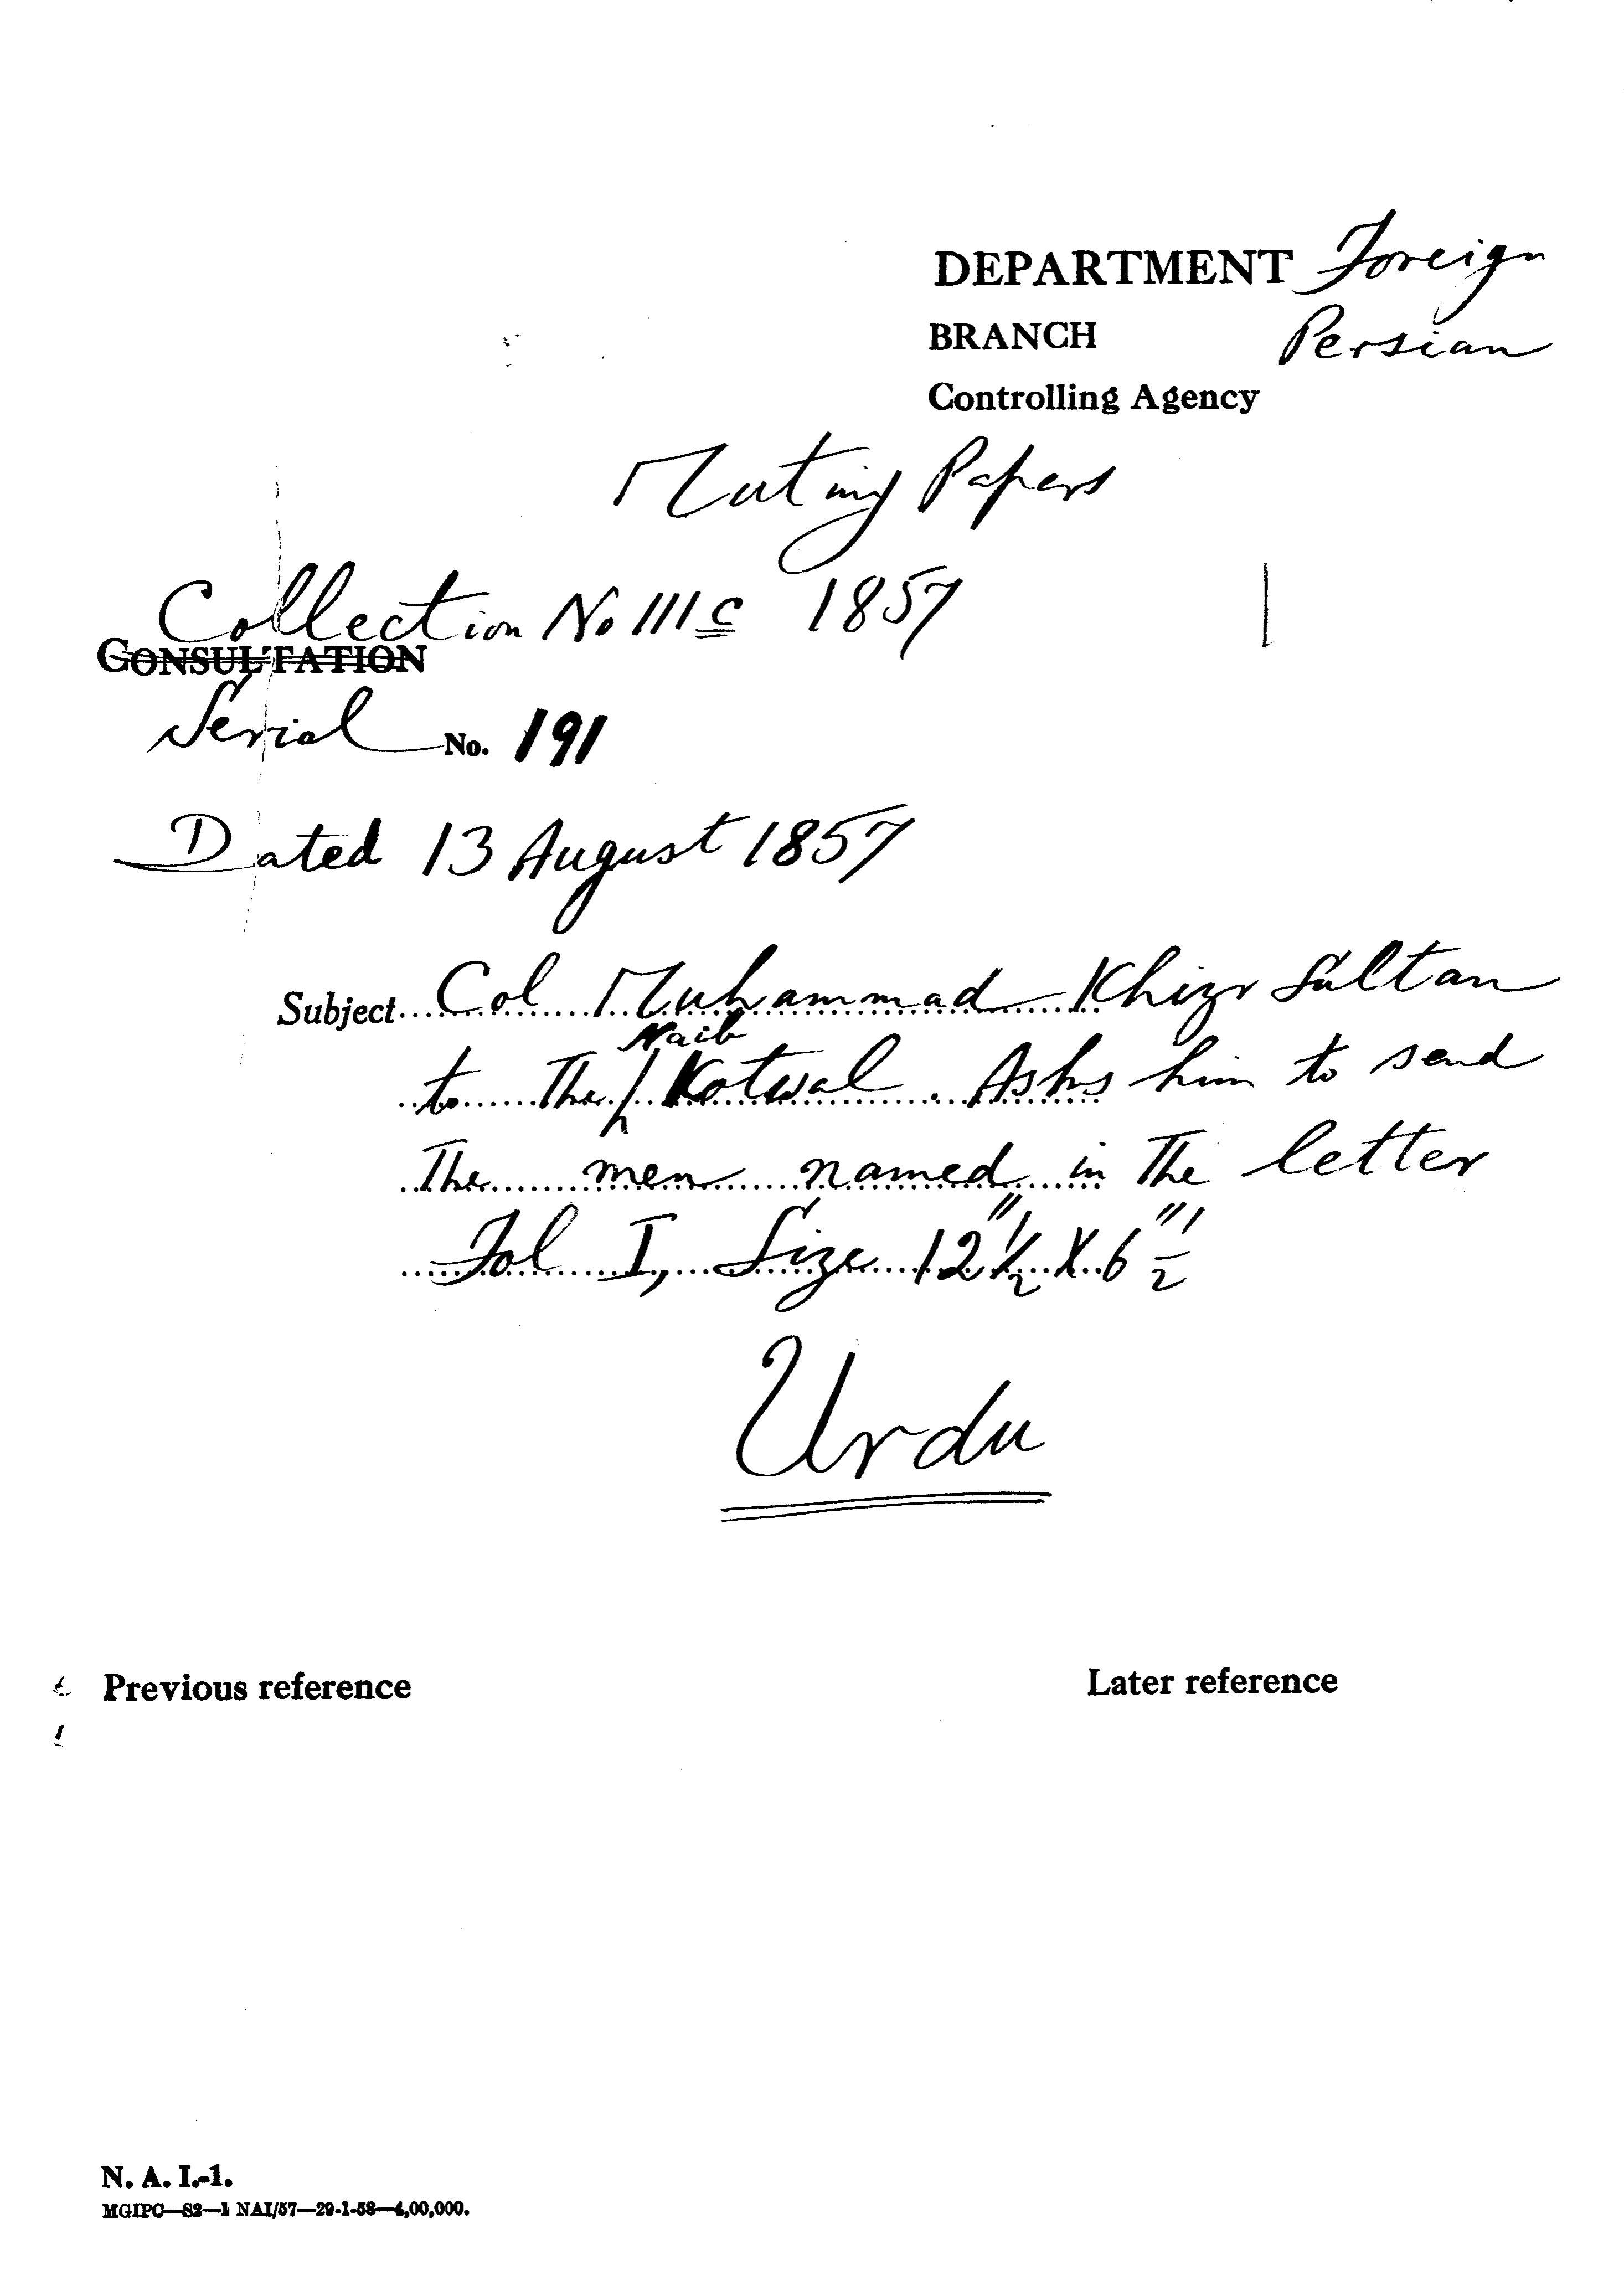 DEPARTMENT Foreign
BRANCH Persian
Controlling Agency
Mutiny Papers
Collection No IIIc 1857
CONSULTATION
Serial No. 191
Dated 13 August 1857
Subject Col Muhammad Khizr Sultan
Naib
to The Kotwal. Asks him to send
The men named in The letter
Fol I, Size 12"½ X 6"½
Urdu
Previous reference Later reference
N. A. I.-1.
MGIPC—S2—1 NAI/57—29-1-58—4,00,000.